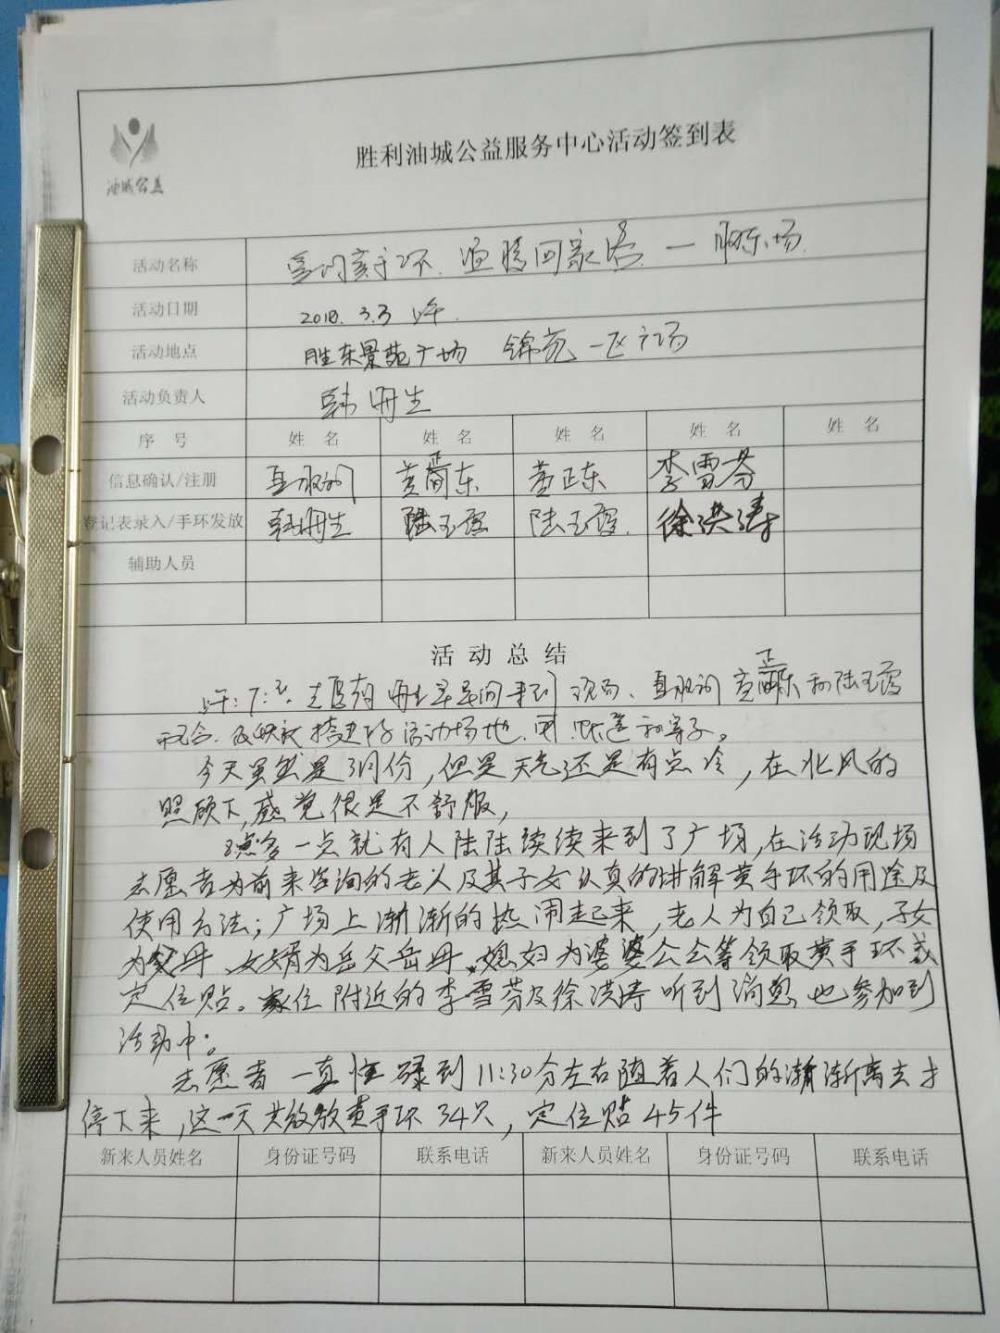 油城公益
胜利油城公益服务中心活动签到表
活动名称 黄手环 回家 一 胜东场
活动日期 2018.3.3 上午
活动地点 胜东景苑广场 锦苑一区广场
活动负责人 韩册生
序 号 姓 名 姓 名 姓 名 姓 名 姓 名
信息确认/注册 董正东 董正东 李雪芬
登记表录入/手环发放 韩册生 陆玉霞 陆玉霞 徐洪涛
辅助人员
活动总结
上午7: 志愿者 册生早早 来到现场、 董正东和陆玉霞
搭建好活动场地,
今天虽然是3月份,但是天气还是有点冷,在北风的
照顾下,感觉很是不舒服,
一点就有人陆陆续续来到了广场,在活动现场
志愿者为前来咨询的老人及其子女认真的讲解黄手环的用途及
使用方法;广场上渐渐的热闹起来,老人为自己领取,子女
为父母、女婿为岳父岳母、媳妇为婆婆公公等领取黄手环或
定位贴。家住附近的李雪芬及徐洪涛听到消息也参加到
活动中。
志愿者一直忙碌到11:30分左右随着人们的渐渐离去才
停下来,这一天共发放黄手环34只,定位贴45件
新来人员姓名 身份证号码 联系电话 新来人员姓名 身份证号码 联系电话